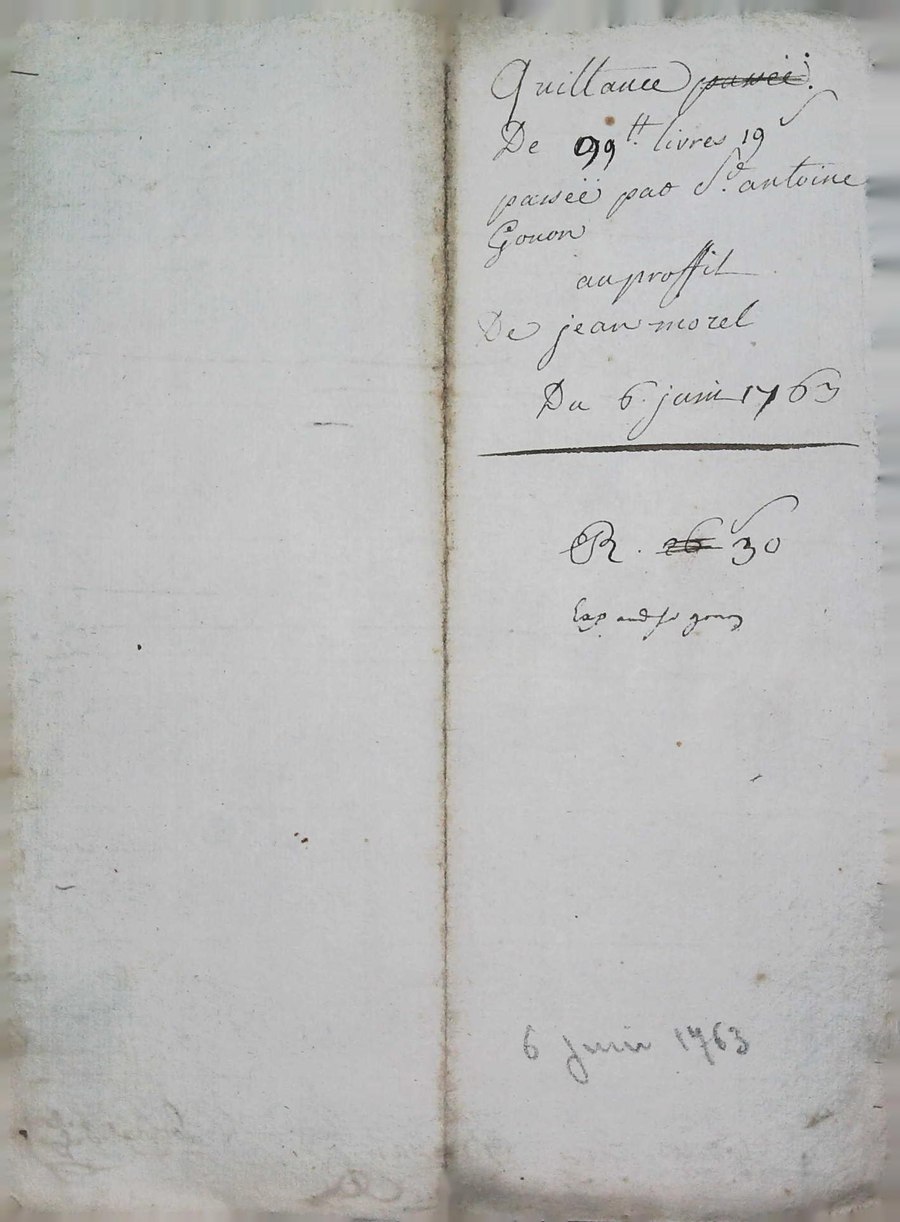 Quittance passée
De 99tt livres 19 s
passée par Sr. antoine
Gonon
au proffit
De jean morel
Du 6 juin 1763
R. 26 30 s
gonon
6 Juin 1763